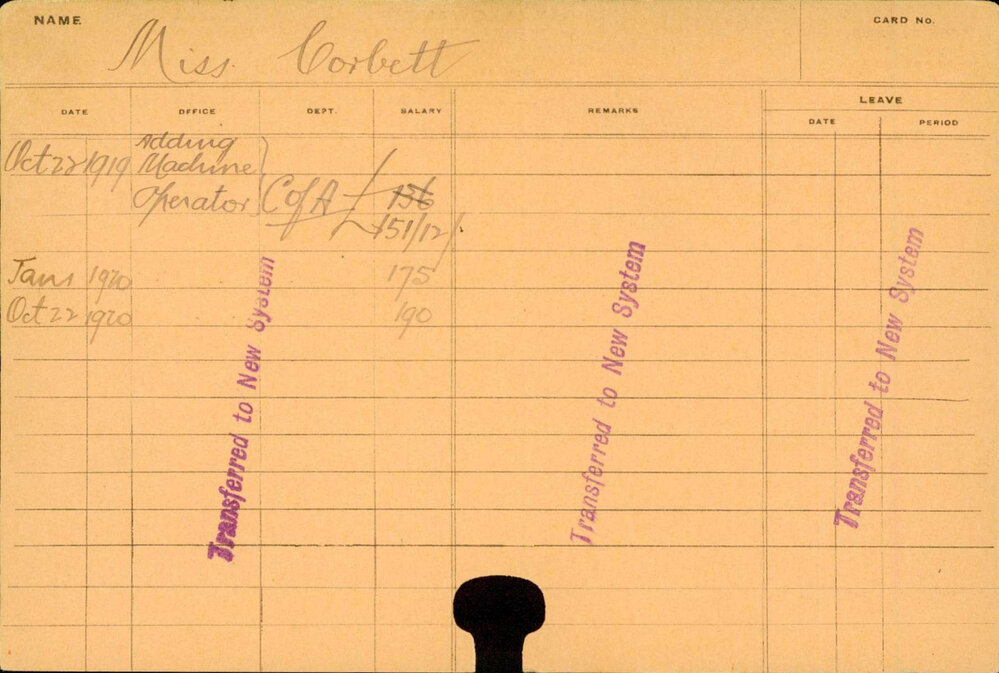 NAME
CARD No.
Miss Corbett
DATE OFFICE DEPT. SALARY REMARKS LEAVE
DATE PERIOD
Oct 22 1919 Adding
Machine
Operator C of A 156
151/12/
1920 175
Oct 22 1920 190
Transferred to New System
Transferred to New System
Transferred to New System